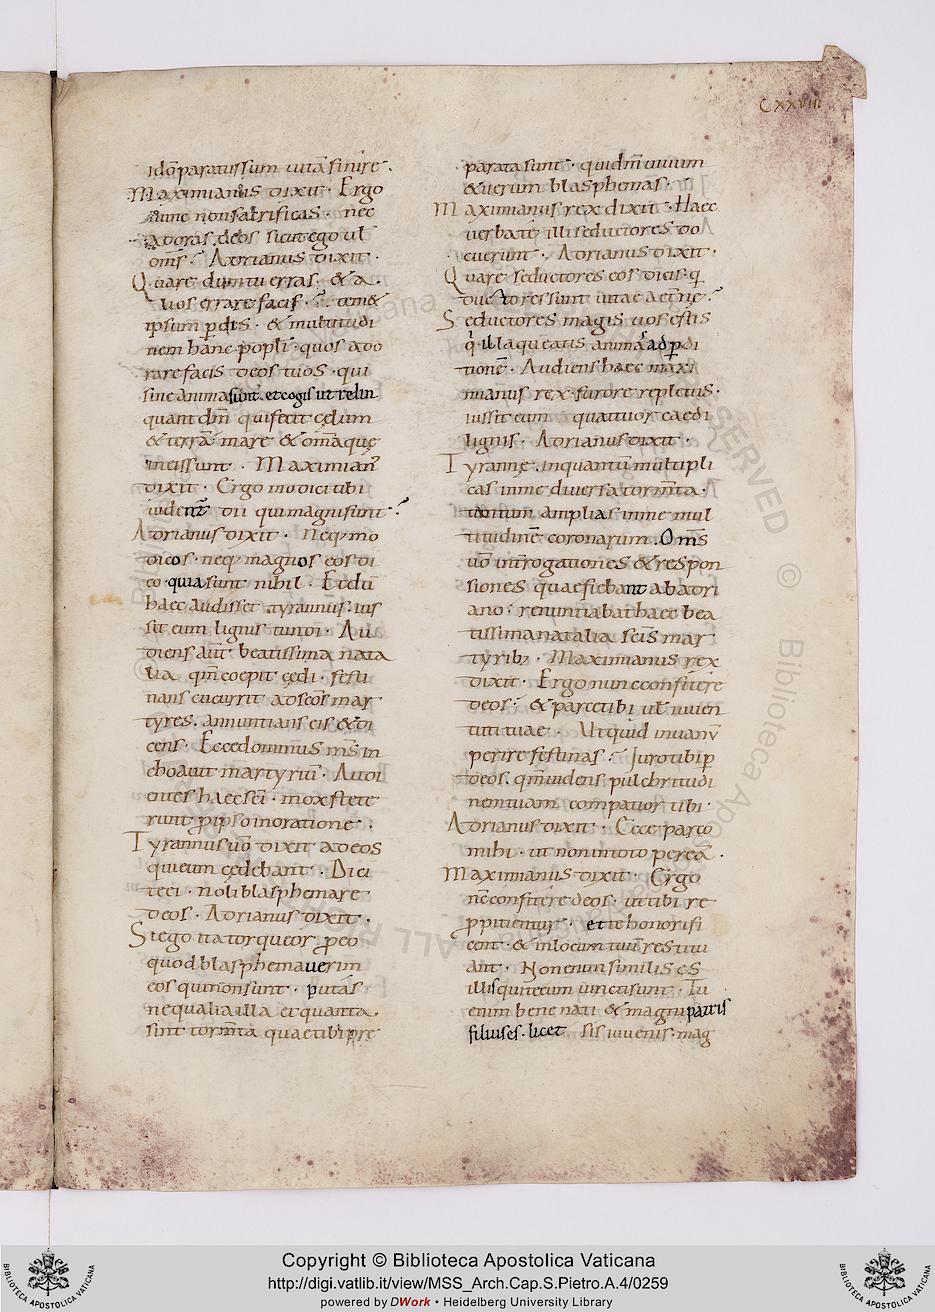 CXXVIII
idõ paratissum uitã finire.
Maximianus dixit. Ergo
nunc non sacrificas. nec
adoras deos sicut ego ul̃
om̃s? Adrianus dixit.
Quare dum tu erras. & a
uos errare facis? tem&
ipsum perdis. & multitudi
nem hanc popli. quos ado
rare facis deos tuos. qui
sine anima sunt. et cogis ut relin
quant dm̃ qui fecit cęlum
& terrã mare & om̃a quę
in eis sunt. Maximian᾽
dixit. Ergo modici tibi
uident᾽ dii qui magni sunt?
Adrianus dixit. Neq; mo
dicos. neq; magnos eos di
co. quia sunt nihil. Et dũ
haec audisset tyrannus. ius
sit eum lignis tundi. Au
diens aut̃ beatissima nata
lia qm̃ coepit cędi. festi
nans cucurrit ad sc̃os mar
tyres. annuntians eis & di
cens. Ecce dominus m̃s in
choauit martyriũ. Audi
entes haec sc̃i. mox stete
runt ꝓ ipso in oratione.
Tyrannus uõ dixit ad eos
qui eum cędebant. Dici
te ei. noli blasphemare
deos. Adrianus dixit.
Si ego ita torqueor ꝓ eo
quod blasphemauerim
eos qui non sunt. putas
ne qualia illa et quanta
sint torm̃ta quae tibi pre
parata sunt. qui dm̃ uiuum
& uerum blasphemas.
Maximianus rex dixit. Haec
uerba te illi seductores do
cuerunt. Adrianus dixit.
Quare seductores eos dicis. q
ductores sunt uitae aet̃nę?
Seductores magis uos estis
q illaqueatis animas ad pdi
tionẽ. Audiens haec maxi
mianus rex. furore repletus.
iussit eum quattuor caedi
lignis. Adrianus dixit.
Tyranne. inquantũ multipli
cas in me diuersa torm̃ta.
tantum amplias in me mul
titudinẽ coronarum. Om̃s
uõ int̃rogationes & respon
siones quae fiebant ab adri
ano. renuntiabat haec bea
tissima natalia sc̃is mar
tyrib;. Maximianus rex
dixit. Ergo nunc confitere
deos. & parce tibi ul̃ iuuen
tuti tuae. Utquid in uanũ
perire festinas? Iuro tibi p
deos. qm̃ uidens pulchritudi
nem tuam compatior tibi.
Adrianus dixit. Ecce parco
mihi. ut non in toto pereã.
Maximianus dixit. Ergo
nẽ confitere deos. ut tibi re
ppitientur. et te honorifi
cent. & in locum tuũ restitu
ant. Non enim similis es
illis qui tecum uincti sunt. Tu
enim bene nati & magni patris
filius es. licet sis iuuenis. mag
Copyright © Biblioteca Apostolica Vaticana
http://digi.vatlib.it/view/MSS_Arch.Cap.S.Pietro.A.4/0259
powered by DWork • Heidelberg University Library